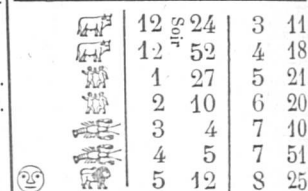 12 Soir 24 3 11
12 52 4 18
1 27 5 21
2 10 6 20
3 4 7 10
4 5 7 51
5 12 8 25